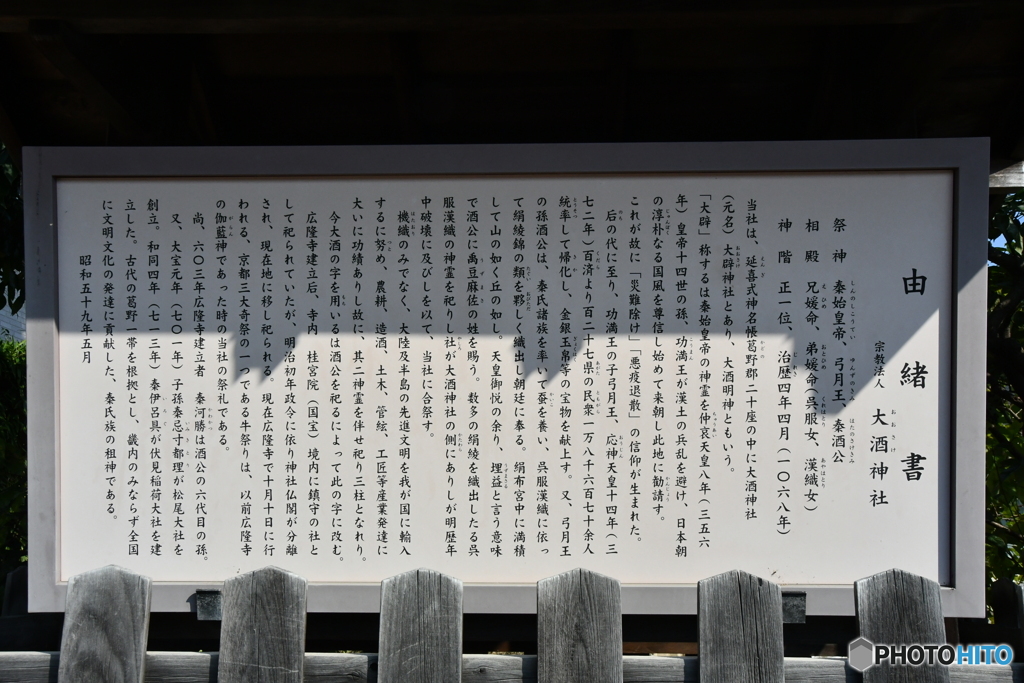 由緒書
宗教法人 大酒神社
祭神 秦始皇帝、弓月王、秦酒公
相殿 兄媛命、弟媛命(呉服女、漢織女)
神階 正一位、治歴四年四月(一〇六八年)
当社は、延喜式神名帳葛野郡二十座の中に大酒神社
(元名)大辟神社とあり、大酒明神ともいう。
「大辟」称するは秦始皇帝の神霊を仲哀天皇八年(三五六
年)皇帝十四世の孫、功満王が漢土の兵乱を避け、日本朝
の淳朴なる国風を尊信し始めて来朝し此地に勧請す。
これが故に「災難除け」「悪疫退散」の信仰が生まれた。
后の代に至り、功満王の子弓月王、応神天皇十四年(三
七二年)百済より百二十七県の民衆一万八千六百七十余人
統率して帰化し、金銀玉帛等の宝物を献上す。又、弓月王
の孫酒公は、秦氏諸族を率いて蚕を養い、呉服漢織に依っ
て絹綾錦の類を夥しく織出し朝廷に奉る。絹布宮中に満積
して山の如く丘の如し。天皇御悦の余り、埋益と言う意味
で酒公に禹豆麻佐の姓を賜う。数多の絹綾を織出したる呉
服漢織の神霊を祀りし社が大酒神社の側にありしが明歴年
中破壊に及びしを以て、当社に合祭す。
機織のみでなく、大陸及半島の先進文明を我が国に輸入
するに努め、農耕、造酒、土木、管絃、工匠等産業発達に
大いに功績ありし故に、其二神霊を伴せ祀り三柱となれり。
今大酒の字を用いるは酒公を祀るによって此の字に改む。
広隆寺建立后、寺内、桂宮院(国宝)境内に鎮守の社と
して祀られていたが、明治初年政令に依り神社仏閣が分離
され、現在地に移し祀られる。現在広隆寺で十月十日に行
われる、京都三大奇祭の一つである牛祭りは、以前広隆寺
の伽藍神であった時の当社の祭礼である。
尚、六〇三年広隆寺建立者 秦河勝は酒公の六代目の孫。
又、大宝元年(七〇一年)子孫秦忌寸都理が松尾大社を
創立。和同四年(七一三年)秦伊呂具が伏見稲荷大社を建
立した。古代の葛野一帯を根拠とし、畿内のみならず全国
に文明文化の発達に貢献した、秦氏族の祖神である。
昭和五十九年五月
PHOTOHITO